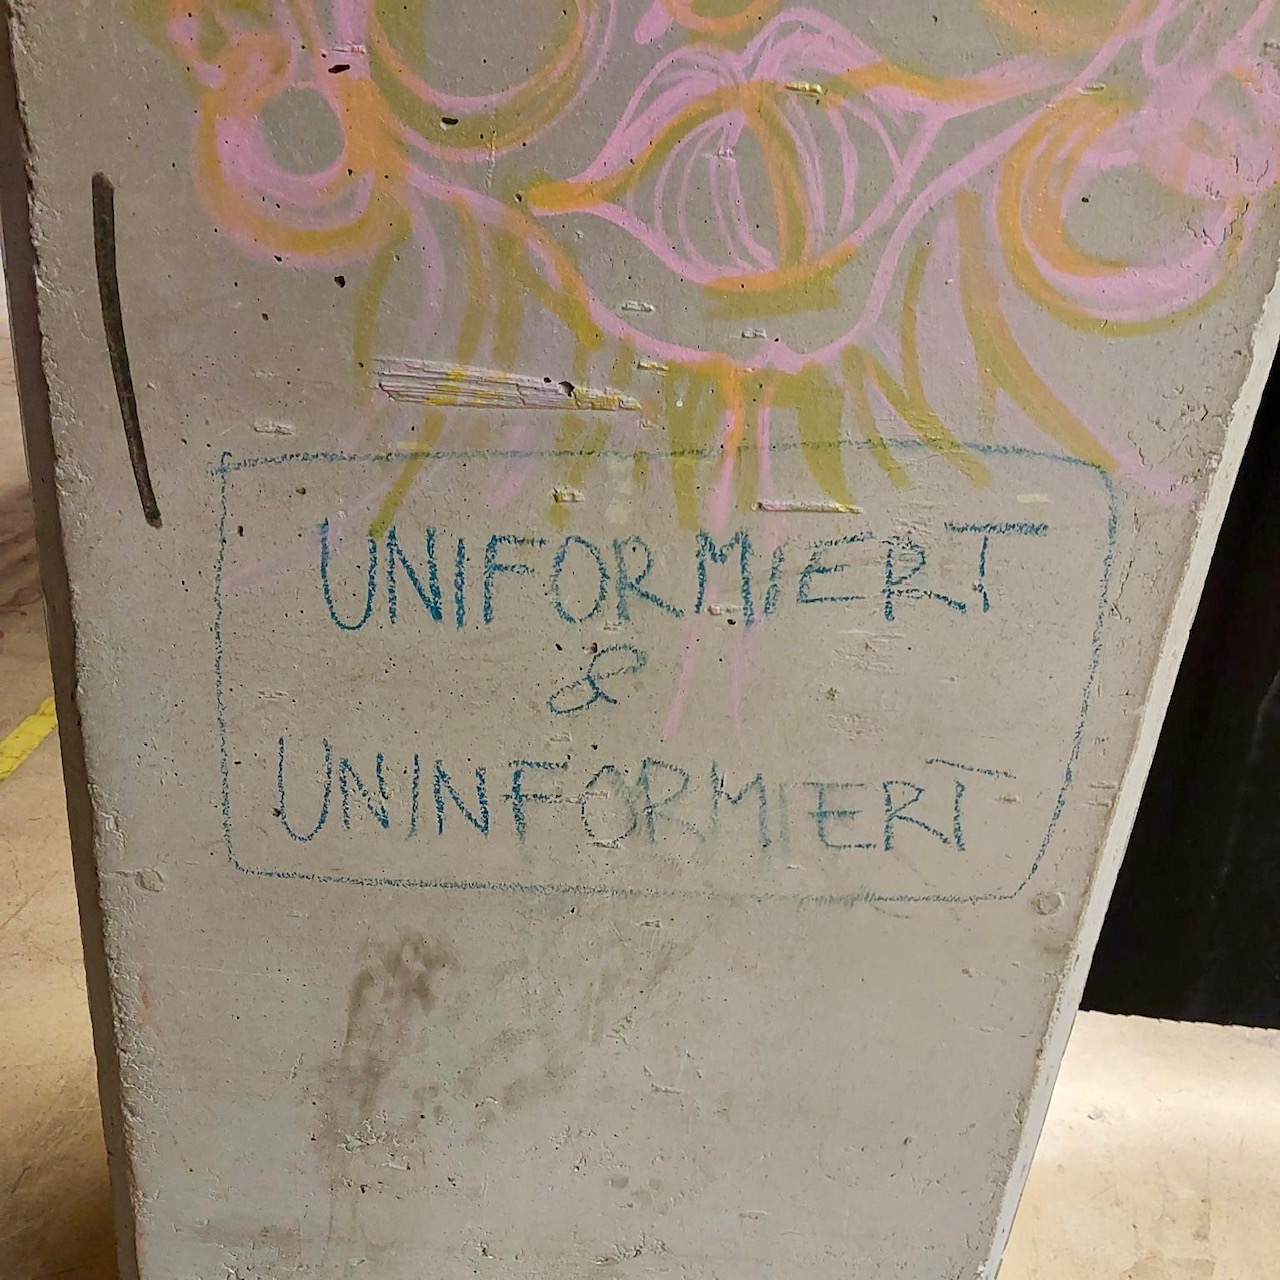 UNIFORMIERT
&
UNINFORMIERT